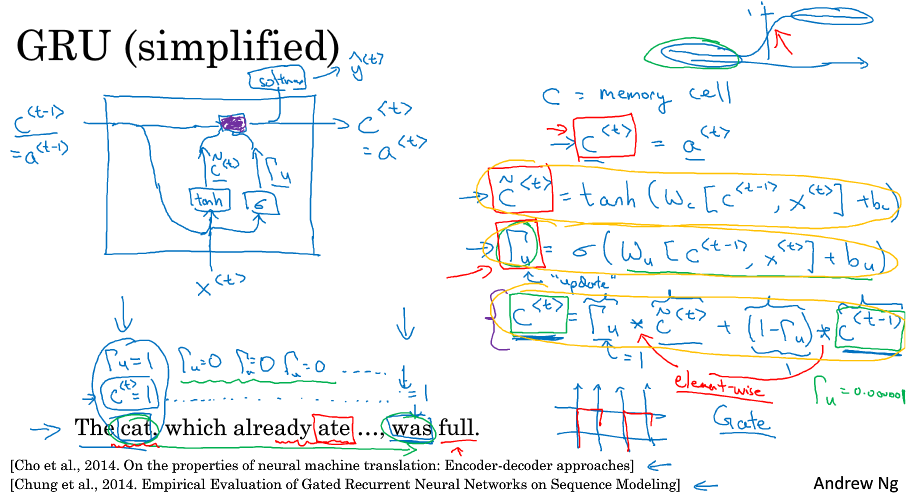 GRU (simplified)
softmax
ŷ<t>
c<t-1>
= a<t-1>
c̃<t>
Γu
tanh
σ
x<t>
c<t>
= a<t>
C = memory cell
→ c<t> = a<t>
→ c̃<t> = tanh (Wc [c<t-1>, x<t>] + bc)
→ Γu = σ (Wu [c<t-1>, x<t>] + bu)
"update"
c<t> = Γu * c̃<t> + (1-Γu) * c<t-1>
= 1
element-wise
Γu = 0.000001
Gate
Γu = 1
Γu = 0 Γu = 0 Γu = 0 .....
c<t> = 1
= 1
→ The cat, which already ate ..., was full.
[Cho et al., 2014. On the properties of neural machine translation: Encoder-decoder approaches] ←
[Chung et al., 2014. Empirical Evaluation of Gated Recurrent Neural Networks on Sequence Modeling] ←
Andrew Ng